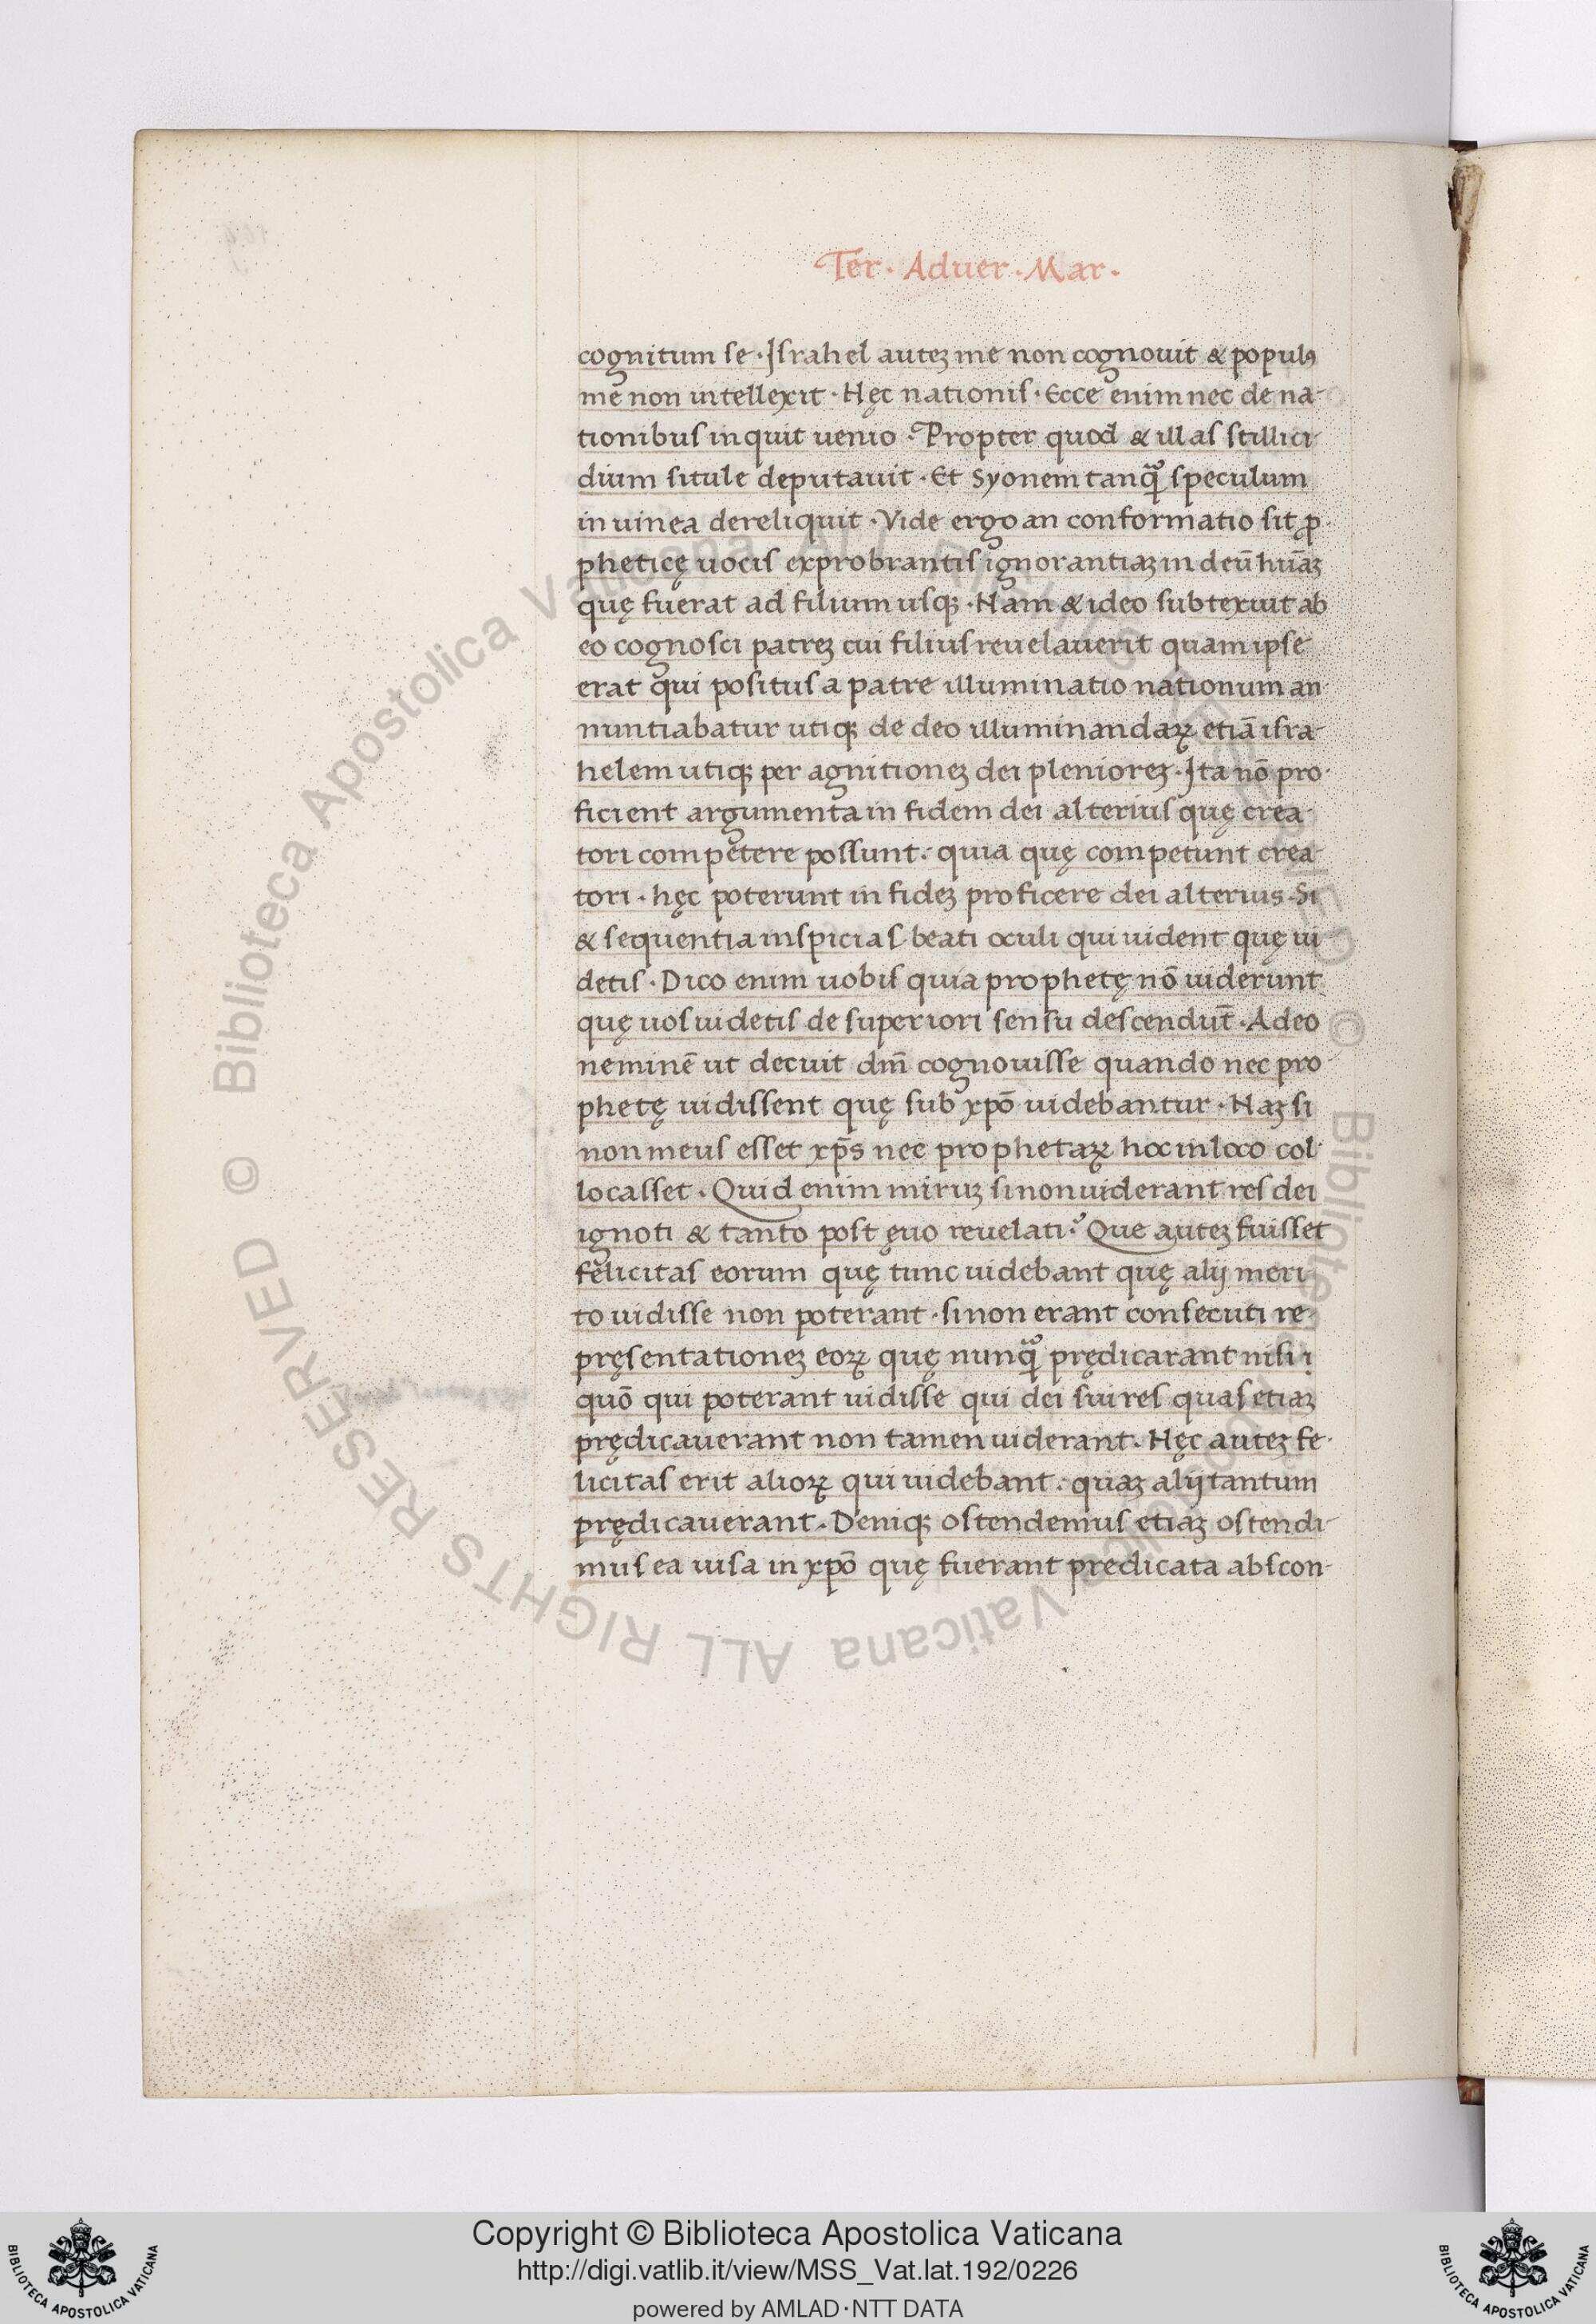 Ter · Aduer · Mar ·
cognitum se · Israhel auteꝫ me non cognouit & populꝰ
me non intellexit · Hęc nationis · Ecce enim nec de na-
tionibus inquit uenio · Propter quod & illas stillici
dium situle deputauit · Et Syonem tanq̃ speculum
in uinea dereliquit · Vide ergo an conformatio sit ꝓ
pheticę uocis exprobrantis ignorantiaꝫ in deū hūaꝫ
quę fuerat ad filium usqꝫ · Nam & ideo subtexuit ab
eo cognosci patreꝫ cui filius reuelauerit quam ipse
erat qui positus a patre illuminatio nationum an
nuntiabatur utiqꝫ de deo illuminandaꝝ etiā isra-
helem utiqꝫ per agnitioneꝫ dei plenioreꝫ · Ita nō pro-
ficient argumenta in fidem dei alterius quę crea-
tori competere possunt · quia quę competunt crea-
tori · hęc poterunt in fideꝫ proficere dei alterius · Si
& sequentia inspicias beati oculi qui uident quę ui
detis · Dico enim uobis quia prophetę nō uiderunt
quę uos uidetis de superiori sensu descendūt · Adeo
neminē ut decuit dm̄ cognouisse quando nec pro-
phetę uidissent quę sub xpō uidebantur · Naꝫ si
non meus esset xp̄s nec prophetaꝝ hoc in loco col-
locasset · Quid enim miruꝫ si non uiderant res dei
ignoti & tanto post ęuo reuelati? Que auteꝫ fuisset
felicitas eorum quę tunc uidebant quę alij meri
to uidisse non poterant · si non erant consecuti re-
pręsentationeꝫ eoꝝ quę nunq̃ prędicarant nisi i
quō qui poterant uidisse qui dei sui res quas etiaꝫ
prędicauerant non tamen uiderant · Hęc auteꝫ fe-
licitas erit alioꝝ qui uidebant · quaꝫ alij tantum
prędicauerant · Deniqꝫ ostendemus etiaꝫ ostendi-
mus ea uisa in xpō quę fuerant predicata abscon-
Copyright © Biblioteca Apostolica Vaticana
http://digi.vatlib.it/view/MSS_Vat.lat.192/0226
powered by AMLAD·NTT DATA
BIBLIOTECA APOSTOLICA VATICANA
BIBLIOTECA APOSTOLICA VATICANA
© Biblioteca Apostolica Vaticana ALL RIGHTS RESERVED © Biblioteca Apostolica Vaticana ALL RIGHTS RESERVED